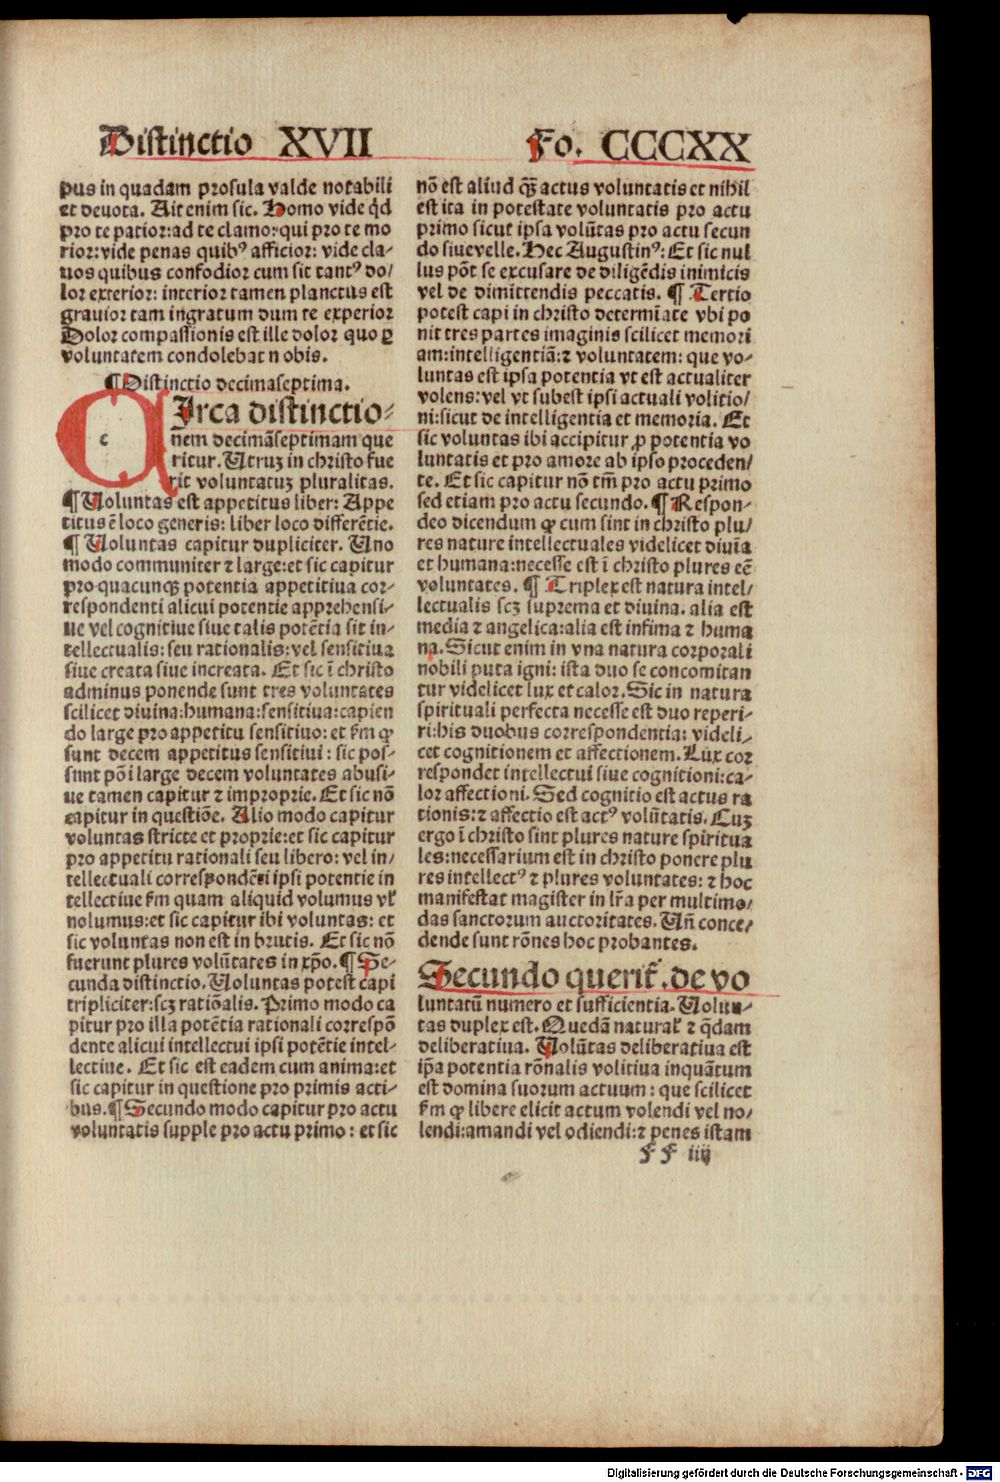 Distinctio XVII
Fo. CCCXX
pus in quadam prosula valde notabili
et deuota. Ait enim sic. Homo vide qd̄
pro te patior: ad te clamo: qui pro te mo
rior: vide penas quibꝰ afficior: vide cla-
uos quibus confodior cum sit tantꝰ do/
lor exterior: interior tamen planctus est
grauior tam ingratum dum te experior
Dolor compassionis est ille dolor quo ꝑ
voluntatem condolebat nobis.
¶ Distinctio decimaseptima.
c
Irca distinctio-
nem decimāseptimam que
ritur. Utruꝫ in christo fue
rit voluntatuꝫ pluralitas.
¶ Voluntas est appetitus liber: Appe
titus ē loco generis: liber loco differētie.
¶ Voluntas capitur dupliciter. Uno
modo communiter ⁊ large: et sic capitur
pro quacunqꝫ potentia appetitiua cor-
respondenti alicui potentie apprehensi-
ue vel cognitiue siue talis potētia sit in-
tellectualis: seu rationalis: vel sensitiua
siue creata siue increata. Et sic ī christo
adminus ponende sunt tres voluntates
scilicet diuina: humana: sensitiua: capien
do large pro appetitu sensitiuo: et fm̄ ꝙ
sunt decem appetitus sensitiui: sic pos-
sunt pōi large decem voluntates abusi-
ue tamen capitur ⁊ improprie. Et sic nō
capitur in questiōe. Alio modo capitur
voluntas stricte et proprie: et sic capitur
pro appetitu rationali seu libero: vel in/
tellectuali correspondēti ipsi potentie in
tellectiue fm̄ quam aliquid volumus vl̄
nolumus: et sic capitur ibi voluntas: et
sic voluntas non est in brutis. Et sic nō
fuerunt plures volūtates in xp̄o. ¶ Se-
cunda distinctio. Voluntas potest capi
tripliciter: scꝫ ratiōalis. Primo modo ca
pitur pro illa potētia rationali correspō
dente alicui intellectui ipsi potētie intel-
lectiue. Et sic est eadem cum anima: et
sic capitur in questione pro primis acti-
bus. ¶ Secundo modo capitur pro actu
voluntatis supple pro actu primo: et sic
nō est aliud qꝫ̄ actus voluntatis et nihil
est ita in potestate voluntatis pro actu
primo sicut ipsa volūtas pro actu secun
do siue velle. Hec Augustinꝰ: Et sic nul
lus pōt se excusare de diligēdis inimicis
vel de dimittendis peccatis. ¶ Tertio
potest capi in christo determīate vbi po
nit tres partes imaginis scilicet memori
am: intelligentiā: ⁊ voluntatem: que vo-
luntas est ipsa potentia vt est actualiter
volens: vel vt subest ipsi actuali volitio/
ni: sicut de intelligentia et memoria. Et
sic voluntas ibi accipitur ꝓ potentia vo
luntatis et pro amore ab ipso proceden/
te. Et sic capitur nō tm̄ pro actu primo
sed etiam pro actu secundo. ¶ Respon-
deo dicendum ꝙ cum sint in christo plu/
res nature intellectuales videlicet diuīa
et humana: necesse est ī christo plures eē
voluntates. ¶ Triplex est natura intel/
lectualis scꝫ suprema et diuina. alia est
media ⁊ angelica: alia est infima ⁊ huma
na. Sicut enim in vna natura corporali
nobili puta igni: ista duo se concomitan
tur videlicet lux et calor. Sic in natura
spirituali perfecta necesse est duo reperi-
ri: his duobus correspondentia: videli-
cet cognitionem et affectionem. Lux cor
respondet intellectui siue cognitioni: ca-
lor affectioni. Sed cognitio est actus ra
tionis: ⁊ affectio est actꝰ volūtatis. Cuꝫ
ergo ī christo sint plures nature spiritua
les: necessarium est in christo ponere plu
res intellectꝰ ⁊ plures voluntates: ⁊ hoc
manifestat magister in lr̄a per multimo/
das sanctorum auctoritates. Un̄ conce/
dende sunt rōnes hoc probantes.
Secundo querit᷑. de vo
luntatū numero et sufficientia. Volun-
tas duplex est. Quedā natural̄ ⁊ q̄dam
deliberatiua. Volūtas deliberatiua est
ip̄a potentia rōnalis volitiua inquātum
est domina suorum actuum: que scilicet
fm̄ ꝙ libere elicit actum volendi vel no-
lendi: amandi vel odiendi: ⁊ penes istam
FF iiij
Digitalisierung gefördert durch die Deutsche Forschungsgemeinschaft - DFG